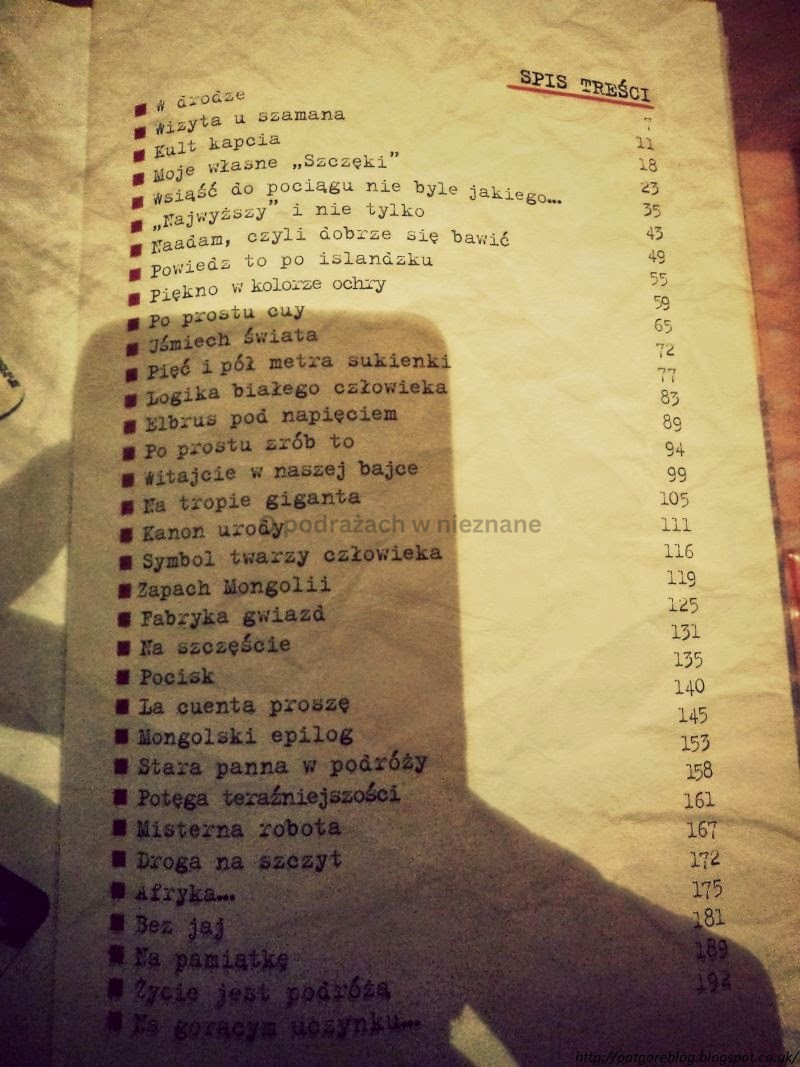 SPIS TREŚCI
W drodze 7
Wizyta u szamana 11
Kult kapcia 18
Moje własne „Szczęki” 23
Wsiąść do pociągu nie byle jakiego… 35
„Najwyższy” i nie tylko 43
Naadam, czyli dobrze się bawić 49
Powiedz to po islandzku 55
Piękno w kolorze ochry 59
Po prostu cuy 65
Uśmiech świata 72
Pięć i pół metra sukienki 77
Logika białego człowieka 83
Elbrus pod napięciem 89
Po prostu zrób to 94
Witajcie w naszej bajce 99
Na tropie giganta 105
Kanon urody 111
podrażach w nieznane
Symbol twarzy człowieka 116
Zapach Mongolii 119
Fabryka gwiazd 125
Na szczęście 131
Pocisk 135
La cuenta proszę 140
Mongolski epilog 145
Stara panna w podróży 153
Potęga teraźniejszości 158
Misterna robota 161
Droga na szczyt 167
Afryka… 172
Bez jaj 175
Na pamiątkę 181
Życie jest podróżą 189
Na gorącym uczynku… 192
http://potgoreblog.blogspot.co.uk/